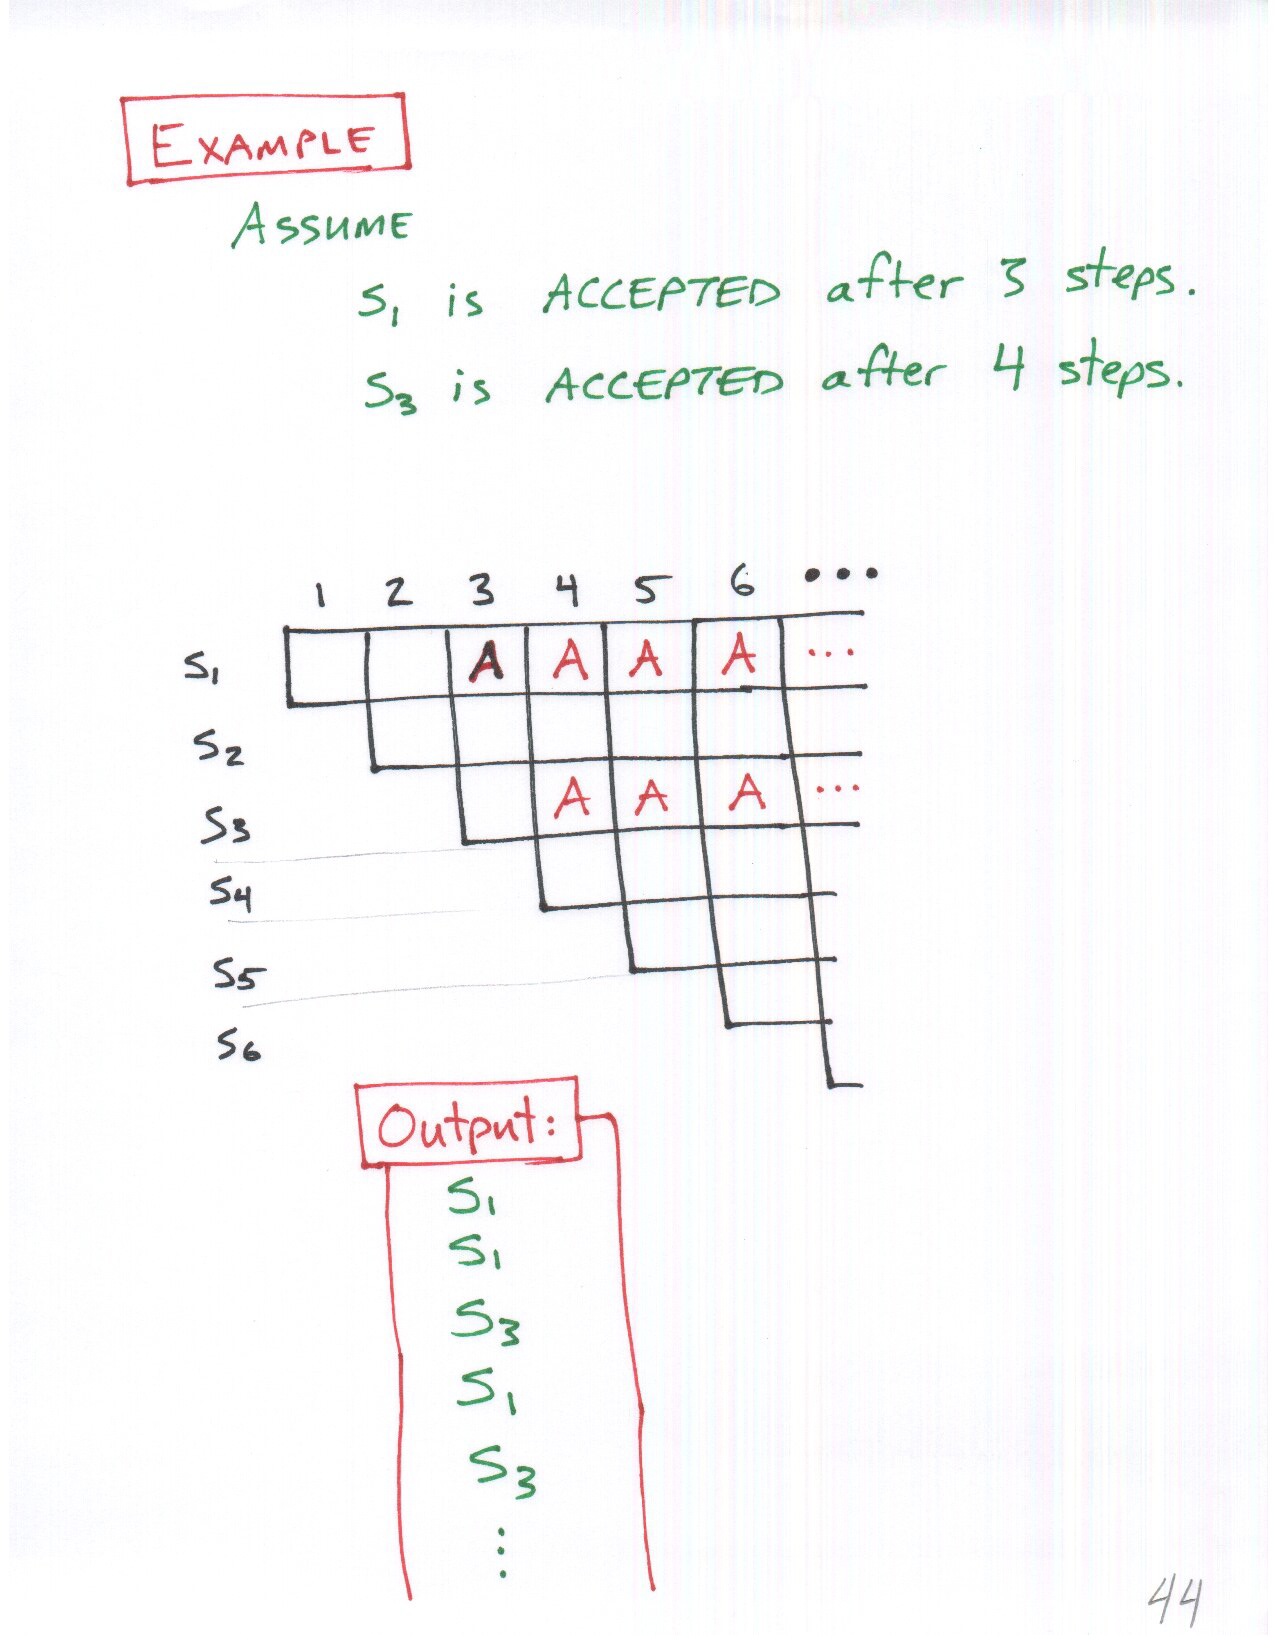 EXAMPLE
ASSUME
S₁ is ACCEPTED after 3 steps.
S₃ is ACCEPTED after 4 steps.
1 2 3 4 5 6 •••
S₁ A A A A ...
S₂
S₃ A A A ...
S₄
S₅
S₆
Output:
S₁
S₁
S₃
S₁
S₃
⋮
44